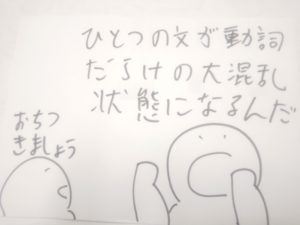 ひとつの文が動詞
だらけの大混乱
状態になるんだ
おちつ
きましょう